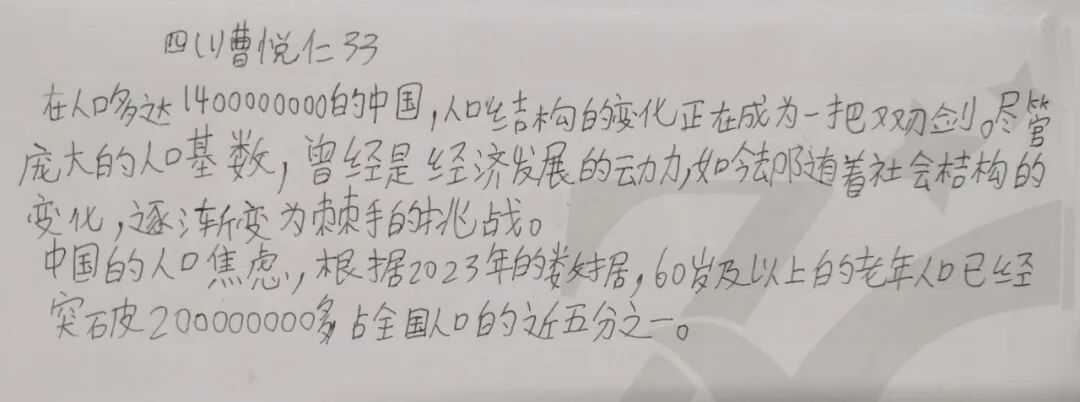 四(1)曹悦仁33
在人口多达1400000000的中国,人口结构的变化正在成为一把双刃剑。尽管
庞大的人口基数,曾经是经济发展的动力,如今却随着社会结构的
变化,逐渐变为棘手的挑战。
中国的人口焦虑,根据2023年的数据,60岁及以上的老年人口已经
突破200000000多,占全国人口的近五分之一。